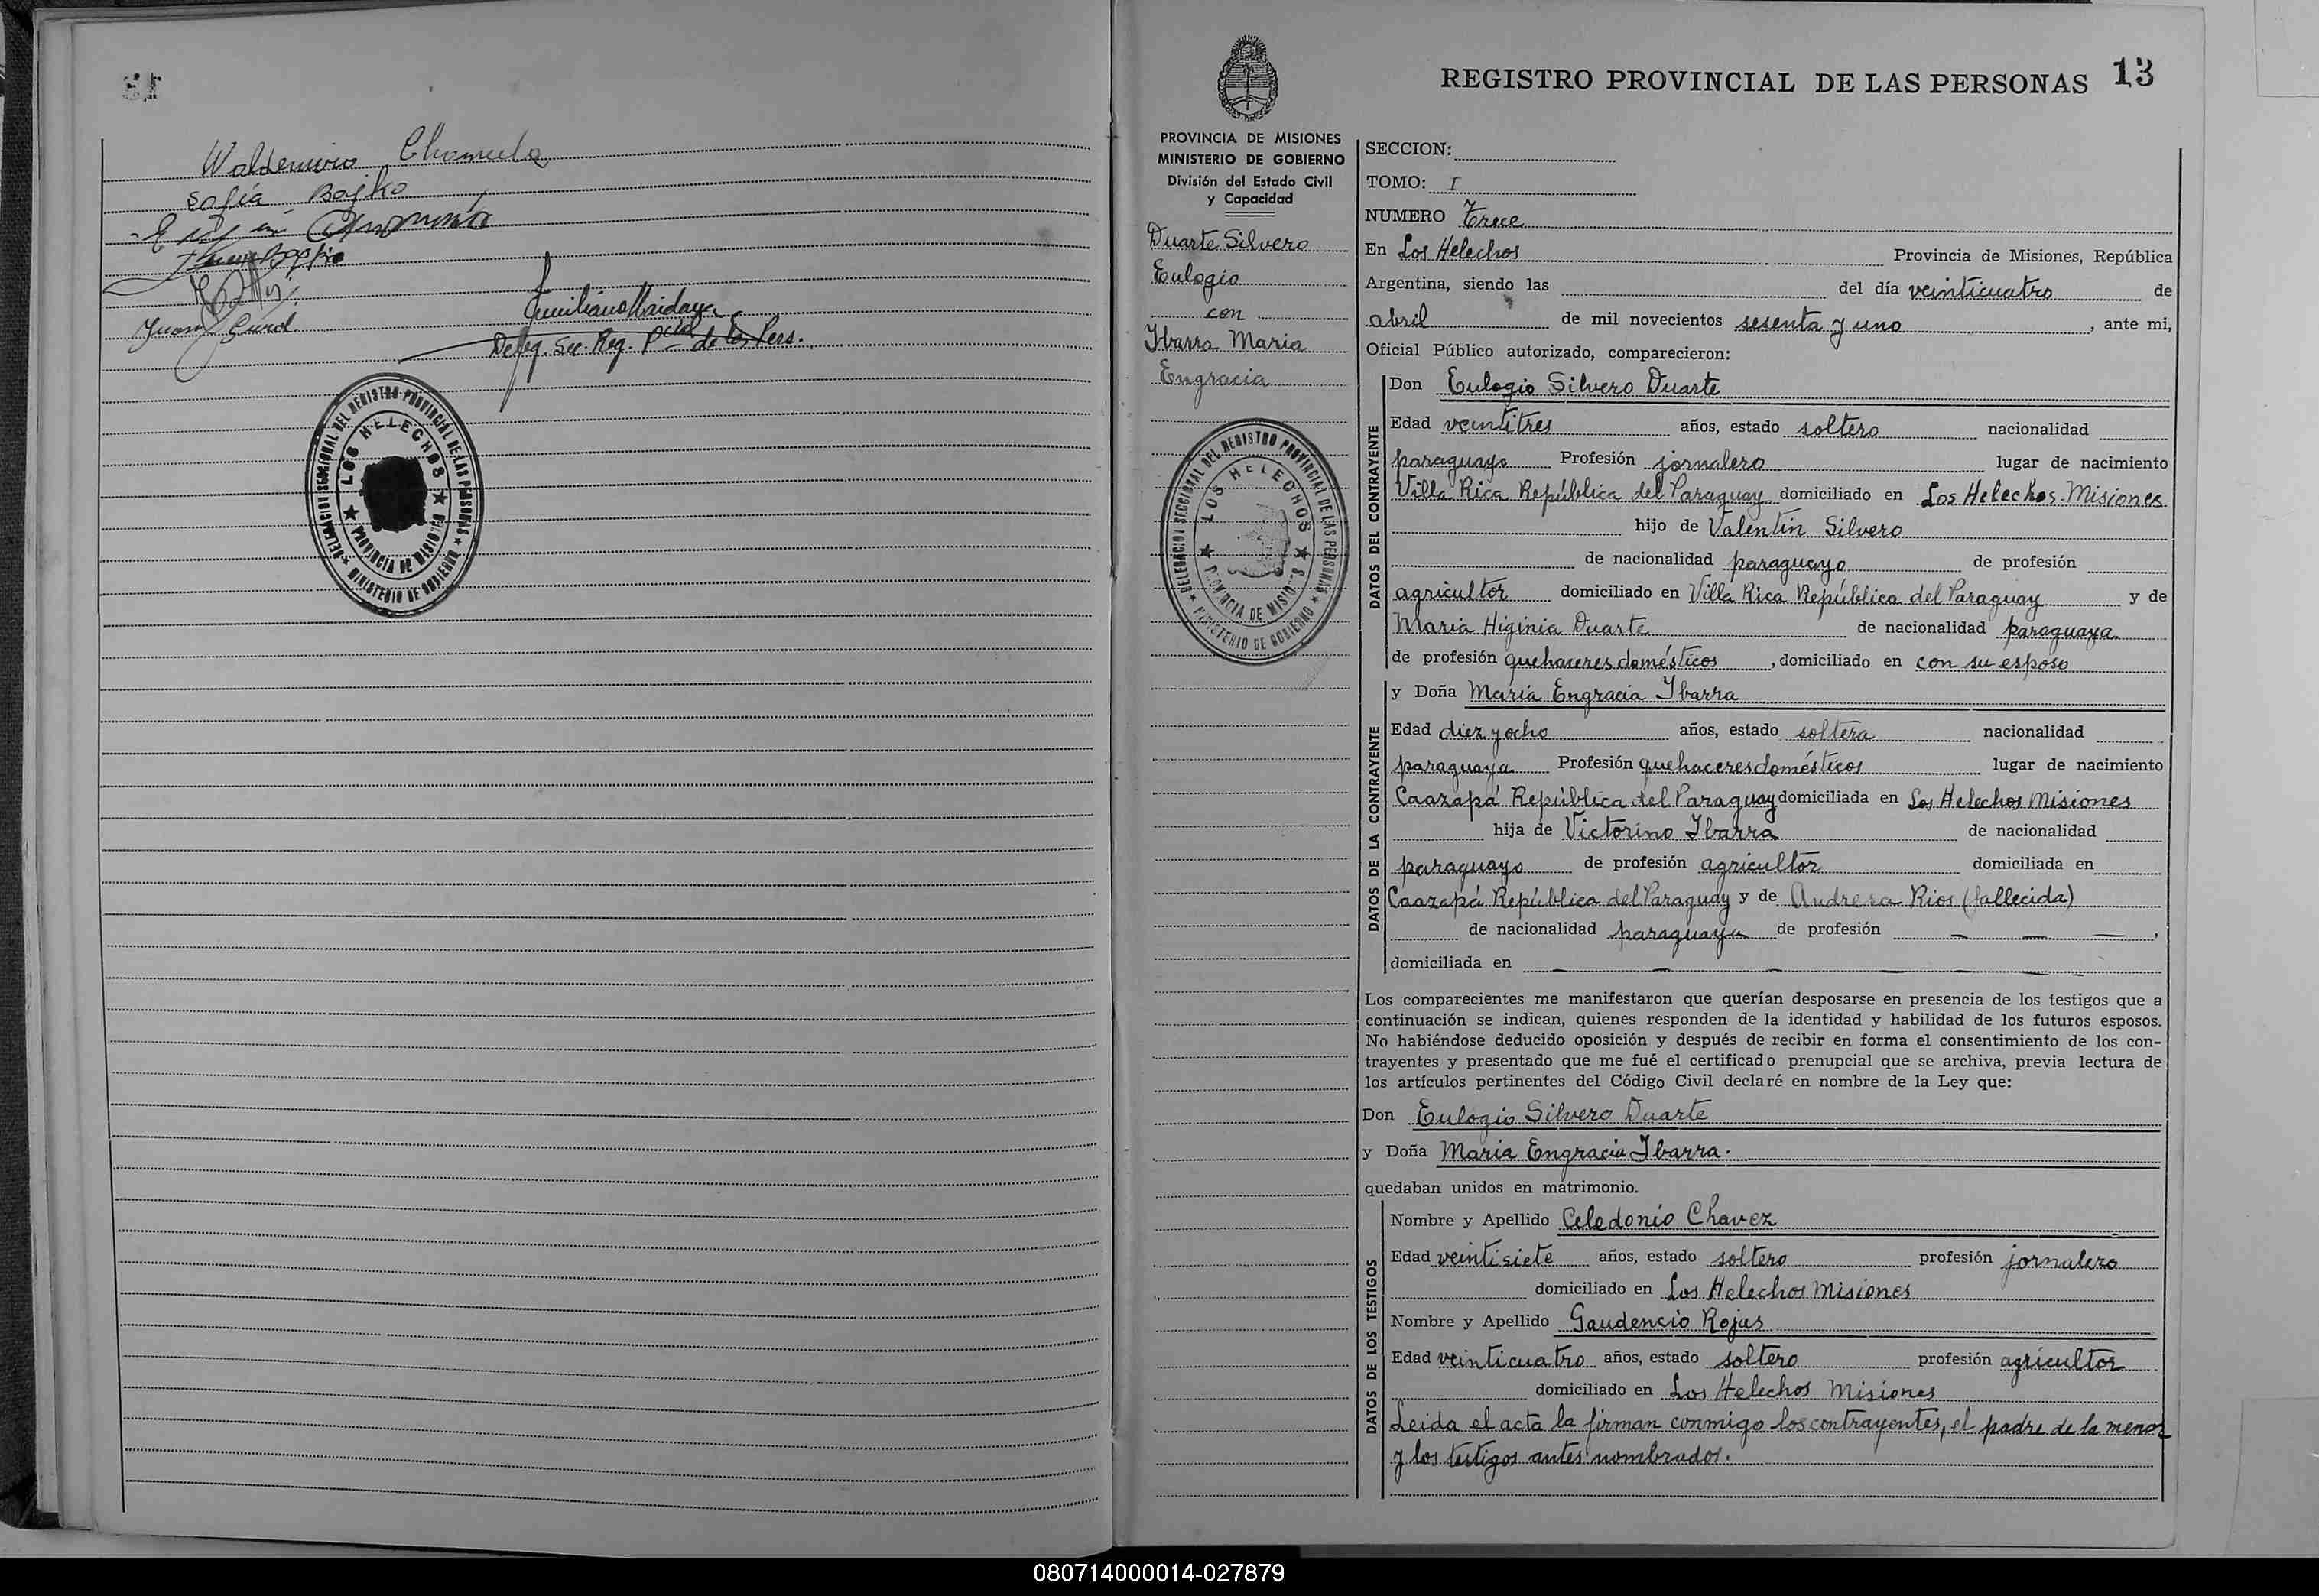 Waldemiro Chamula
Sofía Bojko
Juan
Deleg. Sec. Reg. Pcial de las Pers.
DELEGACION SECCIONAL DEL REGISTRO PROVINCIAL DE LAS PERSONAS ★ MINISTERIO DE GOBIERNO ★
LOS HELECHOS ★ PROVINCIA DE MISIONES ★
REGISTRO PROVINCIAL DE LAS PERSONAS 13
PROVINCIA DE MISIONES
MINISTERIO DE GOBIERNO
División del Estado Civil
y Capacidad
Duarte Silvero
Eulogio
con
Ybarra Maria
Engracia
DELEGACION SECCIONAL DEL REGISTRO PROVINCIAL DE LAS PERSONAS ★ MINISTERIO DE GOBIERNO ★
LOS HELECHOS ★ PROVINCIA DE MISIONES ★
SECCION:
TOMO: I
NUMERO Trece
En Los Helechos Provincia de Misiones, República
Argentina, siendo las del día veinticuatro de
abril de mil novecientos sesenta y uno, ante mi,
Oficial Público autorizado, comparecieron:
DATOS DEL CONTRAYENTE
Don Eulogio Silvero Duarte
Edad veintitres años, estado soltero nacionalidad
paraguayo Profesión jornalero lugar de nacimiento
Villa Rica República del Paraguay domiciliado en Los Helechos-Misiones
hijo de Valentin Silvero
de nacionalidad paraguayo de profesión
agricultor domiciliado en Villa Rica República del Paraguay y de
Maria Higinia Duarte de nacionalidad paraguaya
de profesión quehaceres domésticos, domiciliado en con su esposo
DATOS DE LA CONTRAYENTE
y Doña Maria Engracia Ybarra
Edad diez y ocho años, estado soltera nacionalidad
paraguaya Profesión quehaceres domésticos lugar de nacimiento
Caazapá República del Paraguay domiciliada en Los Helechos Misiones
hija de Victorino Ybarra de nacionalidad
paraguayo de profesión agricultor domiciliada en
Caazapá República del Paraguay y de Andresa Rios (fallecida)
de nacionalidad paraguaya de profesión — — —,
domiciliada en — — — — — —
Los comparecientes me manifestaron que querían desposarse en presencia de los testigos que a
continuación se indican, quienes responden de la identidad y habilidad de los futuros esposos.
No habiéndose deducido oposición y después de recibir en forma el consentimiento de los con-
trayentes y presentado que me fué el certificado prenupcial que se archiva, previa lectura de
los artículos pertinentes del Código Civil declaré en nombre de la Ley que:
Don Eulogio Silvero Duarte
y Doña Maria Engracia Ybarra.
quedaban unidos en matrimonio.
DATOS DE LOS TESTIGOS
Nombre y Apellido Celedonio Chavez
Edad veintisiete años, estado soltero profesión jornalero
domiciliado en Los Helechos Misiones
Nombre y Apellido Gaudencio Rojas
Edad veinticuatro años, estado soltero profesión agricultor
domiciliado en Los Helechos Misiones
Leida el acta la firman conmigo los contrayentes, el padre de la menor
y los testigos antes nombrados.
080714000014-027879